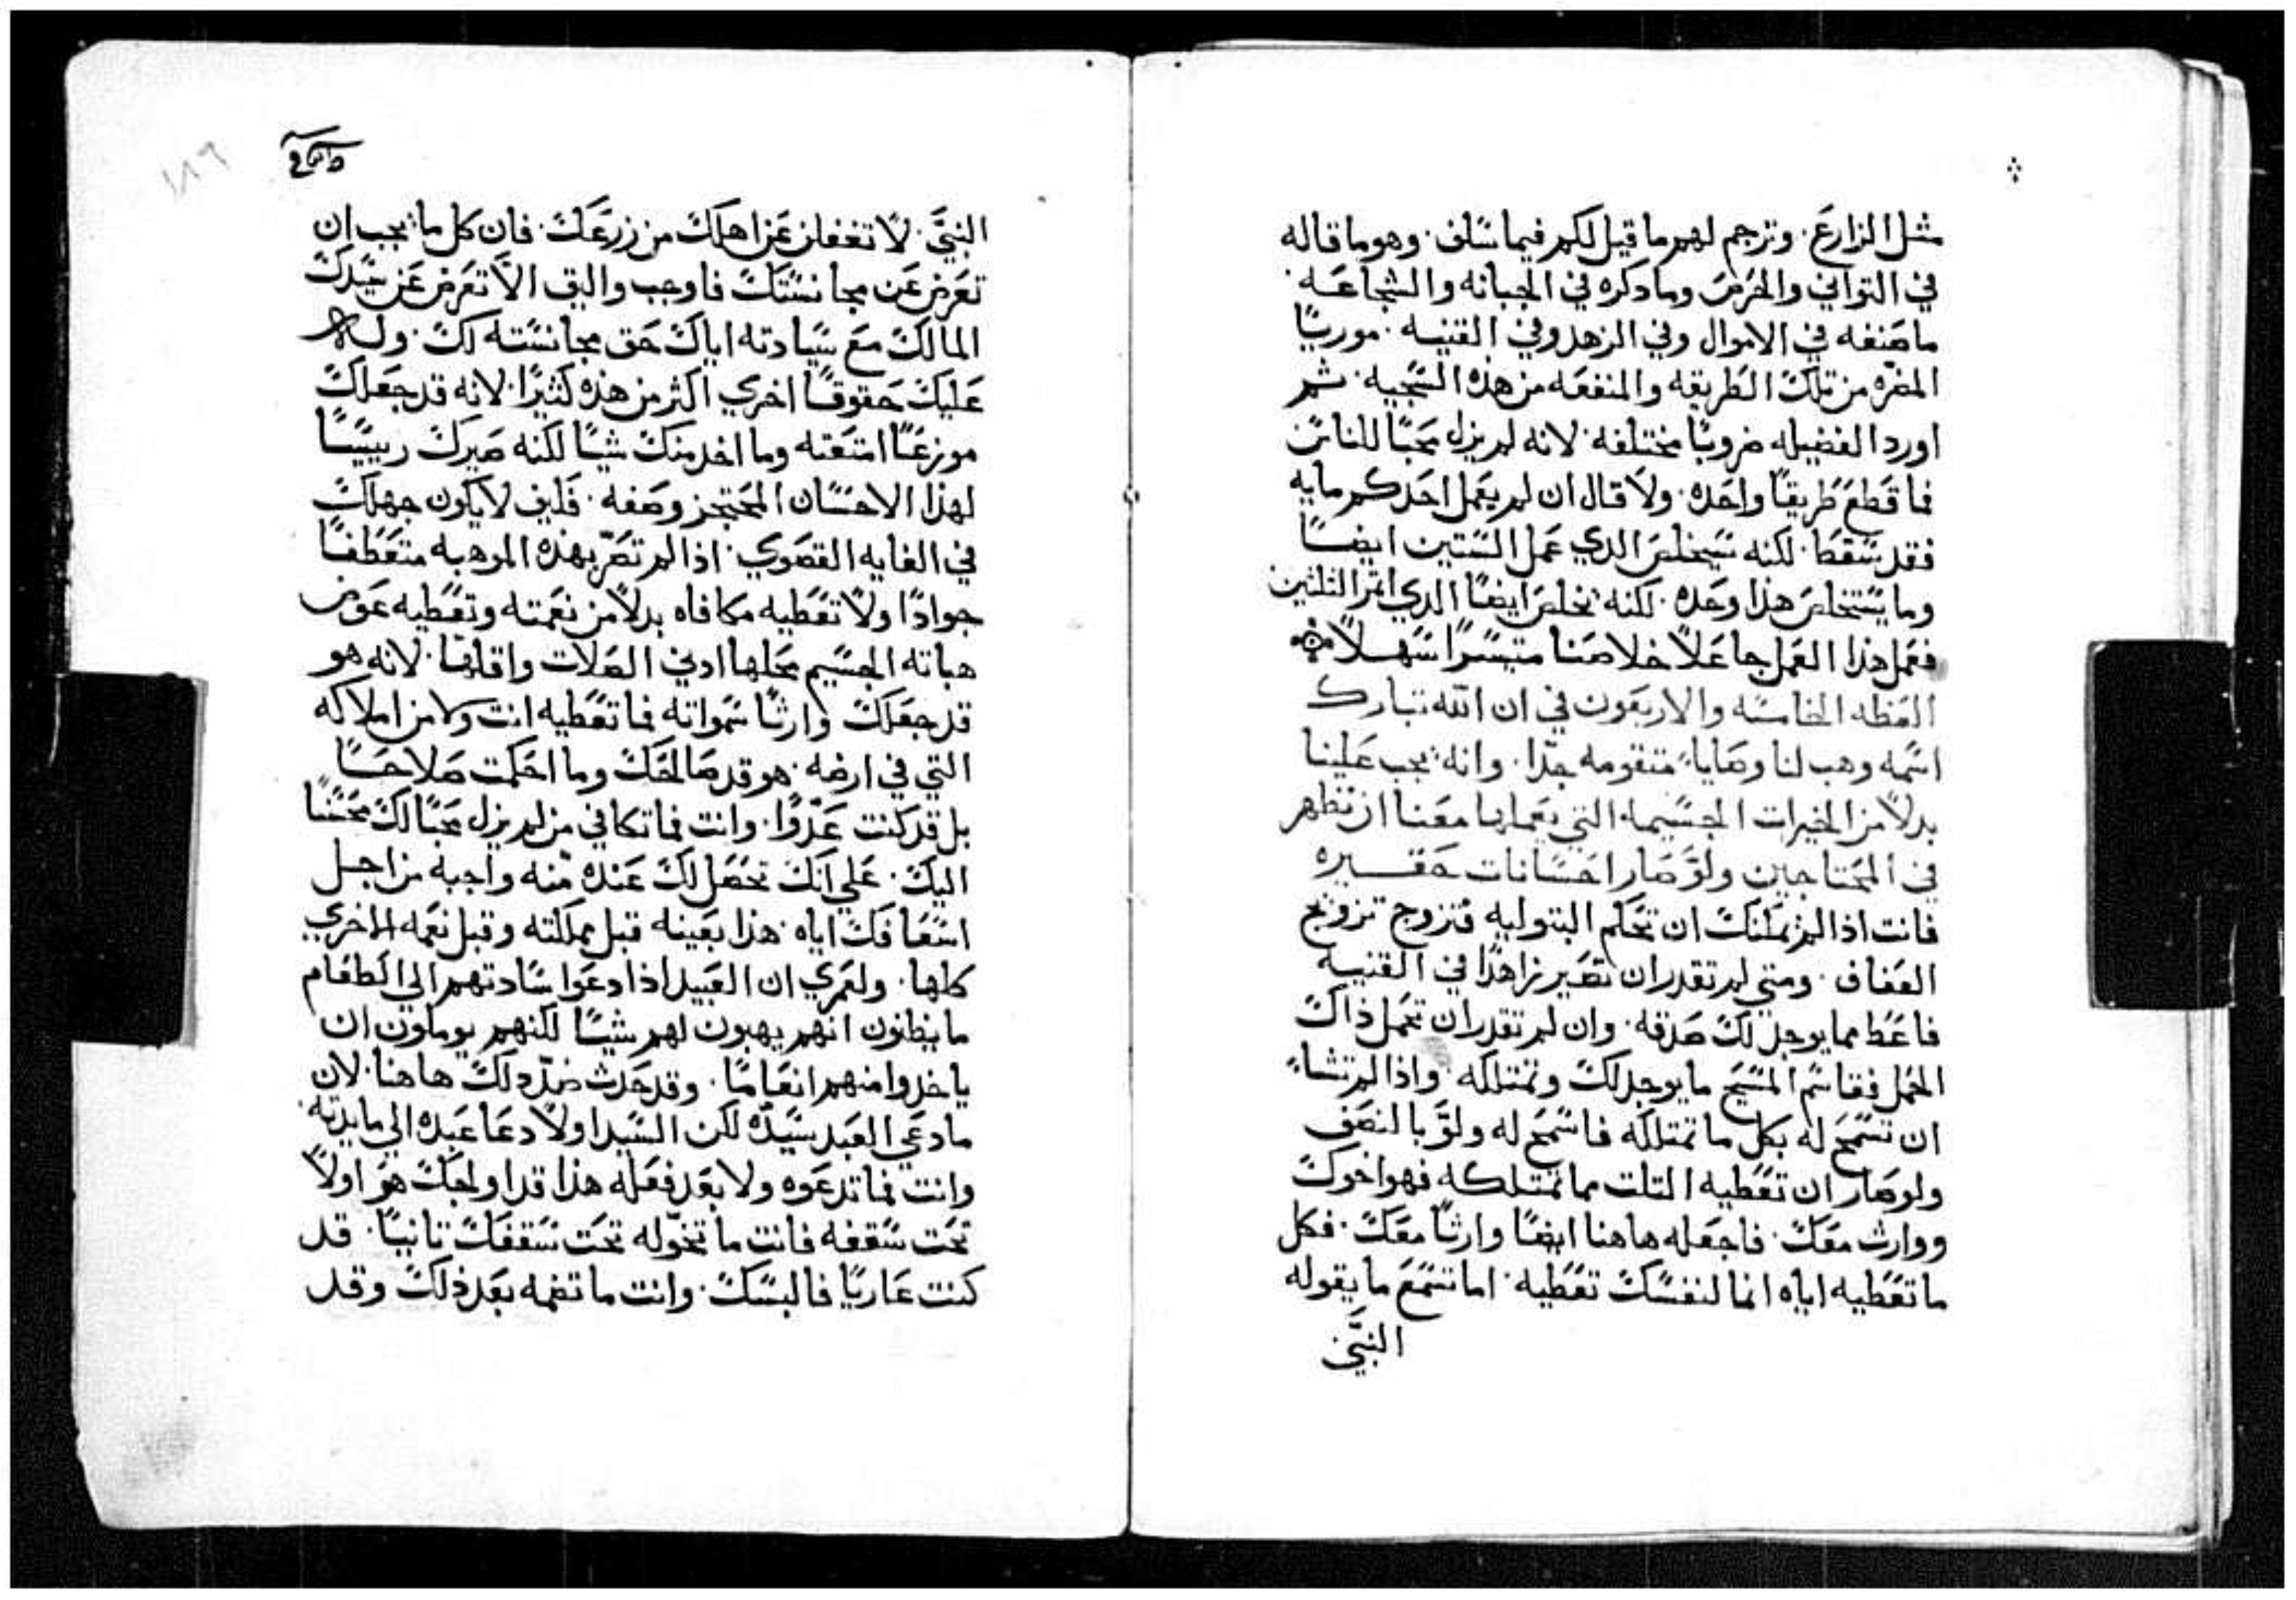 مثل الزارع. وترجم لهم ما قيل لكم فيما سلف. وهو ما قاله
في التواني والحرص وما دكره في الجبانه والشجاعه.
ما صنفه في الاموال وفي الزهد وفي القنيه. موريًا
المضره من تلك الطريقه والمنفعه من هذه السجيه. ثم
اورد الفضيله ضروبًا مختلفه. لانه لم يزل محبًا للناس
فما قطع طريقًا واحده. ولا قال ان لم يعمل احدكم مايه
فقد سقط. لكنه سيخلص الدي عمل الستين ايضًا
وما يستخلص هذا وحده. لكنه يخلص ايضًا الدي اتمر الثلثين
فعمل هذا العمل جاعلاً خلاصنا متيسرًا سهلاً
العظه الخامسه والاربعون في ان الله تبارك
اسمه وهب لنا وصايا متقومه جدًا. وانه يجب علينا
بدلاً من الخيرات الجسيمه التي يعملها معنا ان نظهر
في المحتاجين ولو صار احسانات حقيره
فانت اذا لم يمكنك ان تحكم البتوليه فتزوج تزويج
العفاف. ومتي لم تقدر ان تصير زاهدًا في القنيه
فاعط مما يوجد لك صدقه. وان لم تقدر ان تحمل ذاك
الحمل فقاسم المسيح ما يوجد لك وتمتلكه. واذا لم تشاء
ان تسمح له بكل ما تمتلكه فاسمح له ولو بالنصف
ولو صار ان تعطيه التلت مما تمتلكه فهو اخوك
ووارث معك. فاجعله هاهنا ايضًا وارثًا معك. فكل
ما تعطيه اياه انما لنفسك تعطيه. اما تسمع ما يقوله
النبي
١٨٦
النبي. لا تغفلن عن اهلك من زرعك. فان كل ما يجب ان
تعرض عن مجانستك فاوجب واليق الا تعرض عن سيدك
المالك مع سيادته اياك حق مجانسته لك. وله
عليك حقوقًا اخري اكثر من هذه كثيرًا. لانه قد جعلك
موزعًا امتعته وما اخد منك شيًا لكنه صيرك رييسًا
لهذا الاحسان المحتجز وصفه. فكيف لا يكون جهلك
في الغايه القصوي. اذا لم تصر بهذه الموهبه متعطفًا
جوادًا ولا تعطيه مكافاه بدلاً من نعمته وتعطيه عوض
هباته الجسيم محلها ادني الصلات واقلها. لانه هو
قد جعلك وارثًا سمواته فما تعطيه انت ولا من املاكه
التي في ارضه. هو قد صالحك وما احكمت صلاحًا
بل قد كنت عدوًا. وانت فما تكافي من لم يزل محبًا لك محسنًا
اليك. علي انك تحصل لك عنده منه واجبه من اجل
اسعافك اياه. هذا بعينه قبل مملكته وقبل نعمه الاخري
كلها. ولعمري ان العبيد اذا دعوا سادتهم الي الطعام
ما يظنون انهم يهبون لهم شيًا لكنهم يوملون ان
ياخدوا منهم انعامًا. وقد حدث ضد دلك هاهنا. لان
ما دعي العبد سيده لكن السيد اولاً دعا عبده الي مايدته.
وانت فما تدعوه ولا بعد فعله هذا قد اولجك هو اولاً
تحت سقفه فانت ما تخوله تحت سقفك تانيًا. قد
كنت عاريًا فالبسك. وانت ما تضمه بعد ذلك وقد